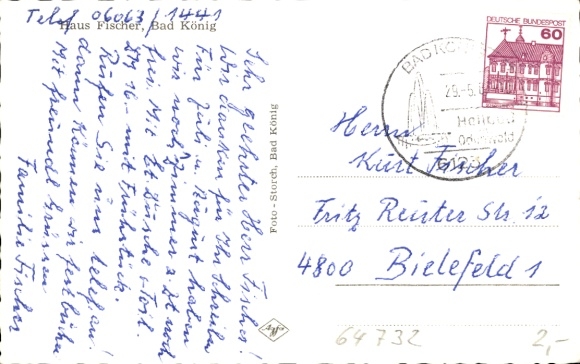 Telef 06063/1441
Haus Fischer, Bad König
Sehr geehrter Herr Fischer!
Wir danken für Ihr Schreiben
Für Juli u. August haben
wir noch Zimmer z. Zt noch
frei. Mit Et. Dusche u. Toil.
DM 16.- mit Frühstück.
Rufen Sie uns telef. an.
dann können wir fest buchen
Mit freundl. Grüssen
Familie Fischer
Foto - Storch, Bad König
Agfa
DEUTSCHE BUNDESPOST
60
BAD KÖNIG
29.-5.
Odenwald
6123
Herrn
Kurt Fischer
Fritz Reuter Str. 12
4800 Bielefeld 1
64732
2,-